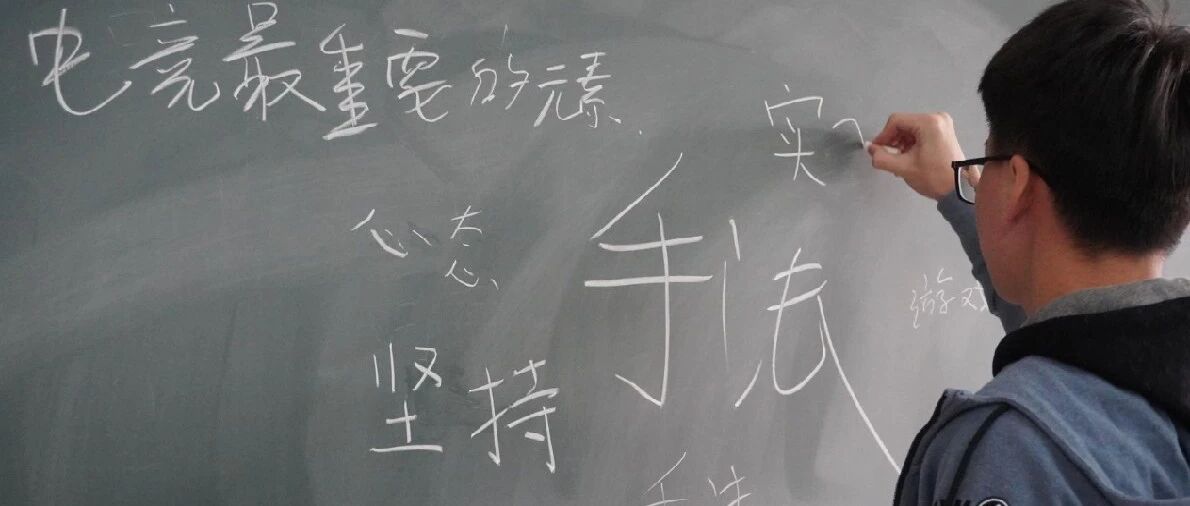 电竞最重要的元素
实
心态
手法
游戏
坚持
手法